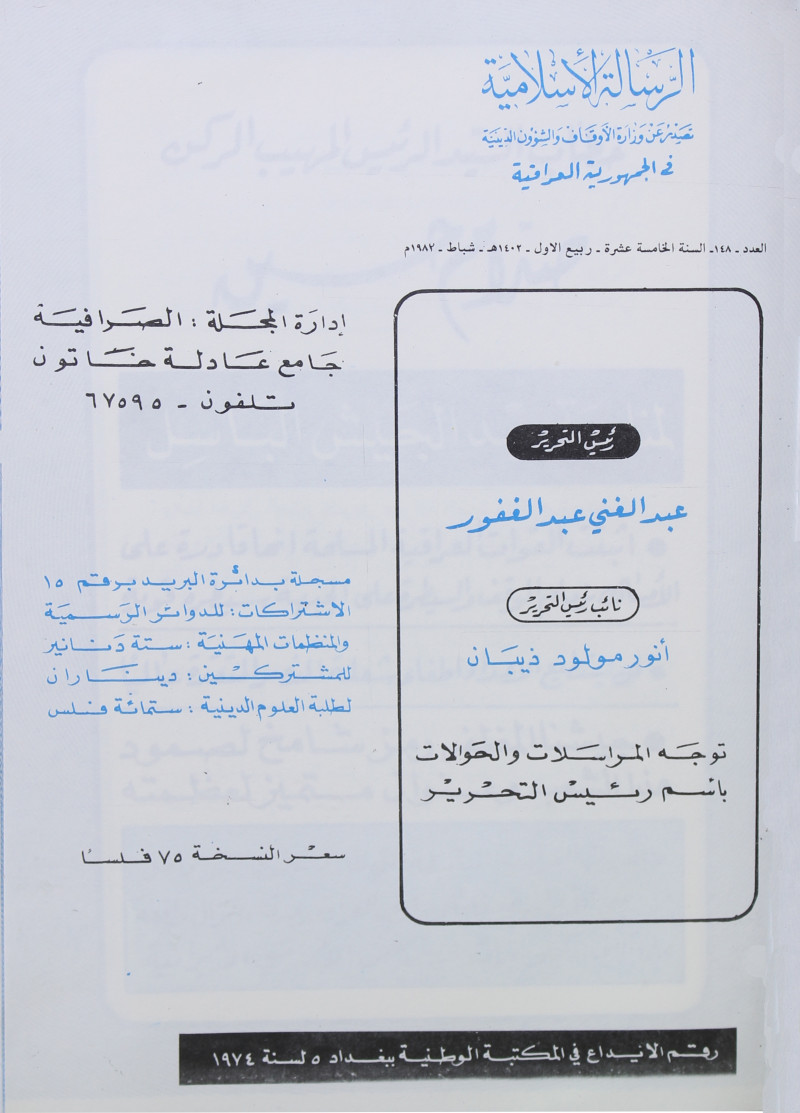 الرسالة الإسلامية
تصدر عن وزارة الأوقاف والشؤون الدينية
في الجمهورية العراقية
العدد ـ ١٤٨ـ السنة الخامسة عشرة ـ ربيع الاول ـ ١٤٠٢هـ ـ شباط ـ ١٩٨٢م
إدارة المجلة : الصرافية
جامع عادلة خاتون
تلفون ـ ٦٧٥٩٥
رئيس التحرير
عبد الغني عبد الغفور
نائب رئيس التحرير
أنور مولود ذيبان
توجه المراسلات والحوالات
باسم رئيس التحرير
مسجلة بدائرة البريد برقم ١٥
الاشتراكات : للدوائر الرسمية
والمنظمات المهنية : ستة دنانير
للمشتركين : ديناران
لطلبة العلوم الدينية : ستمائة فلس
سعر النسخة ٧٥ فلسا
رقم الايداع في المكتبة الوطنية ببغداد ٥ لسنة ١٩٧٤